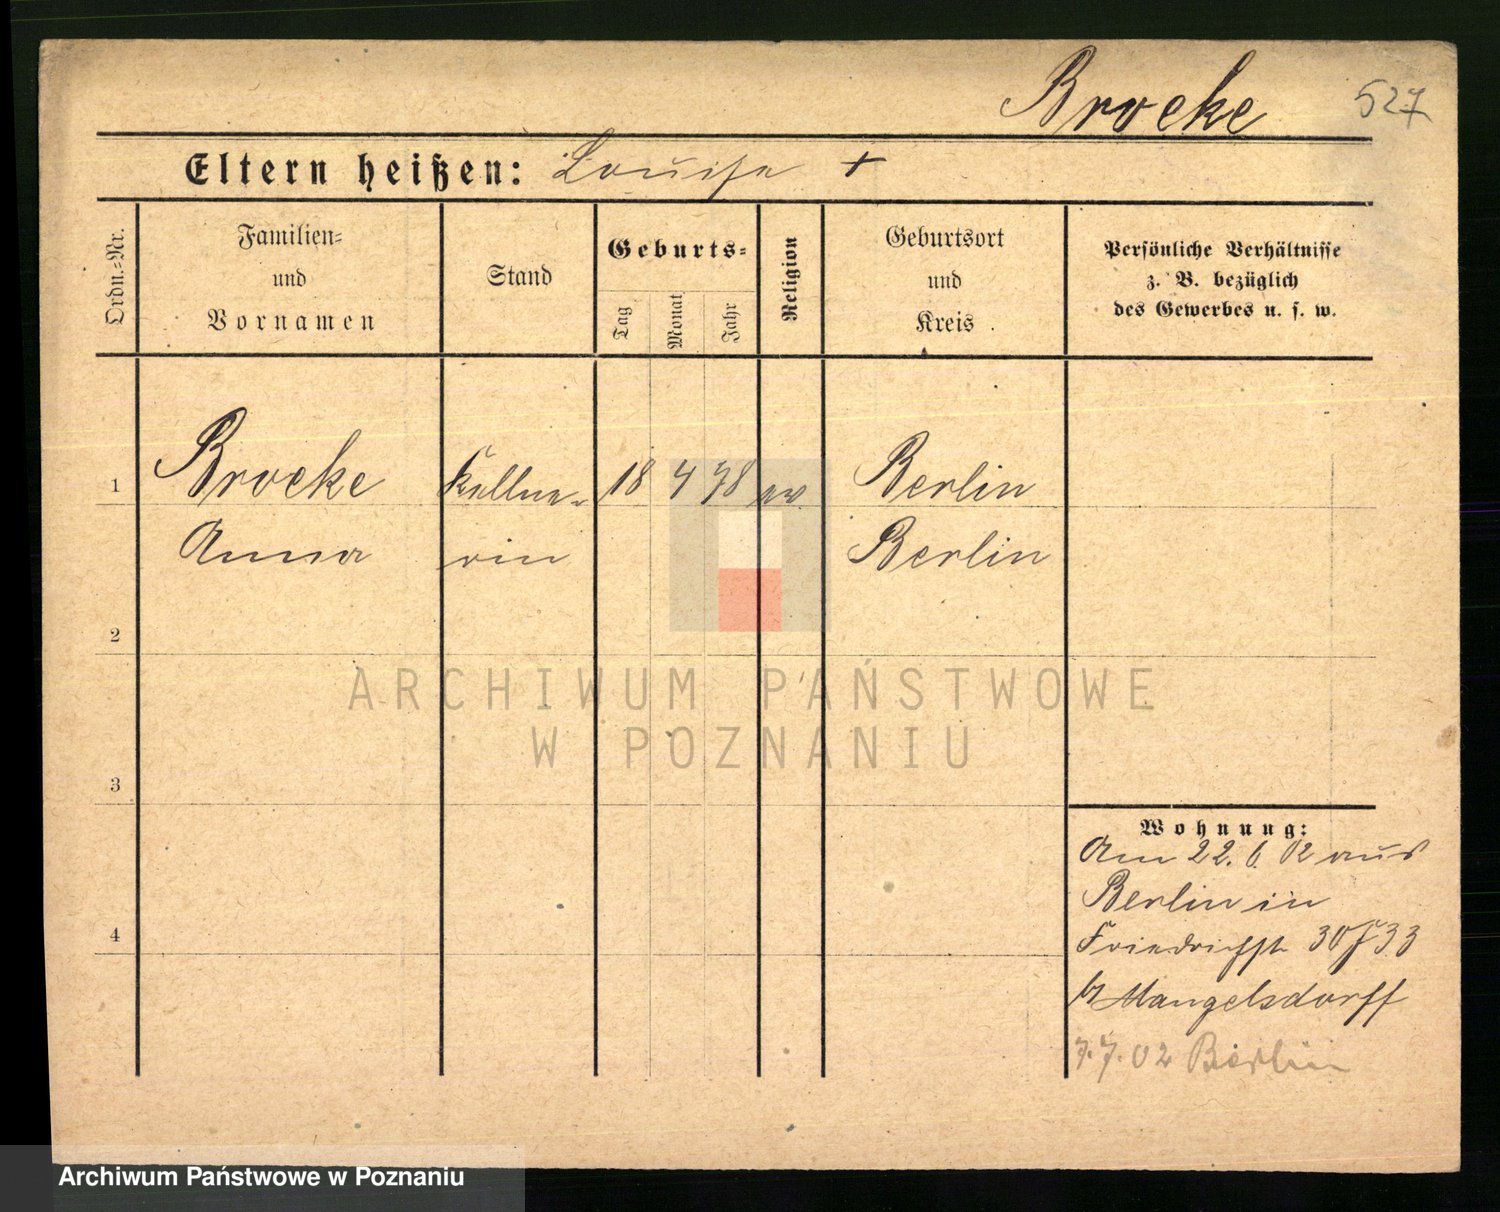 Brocke 527
Eltern heißen: Louise +
Ordn.=Nr.
Familien=
und
Vornamen
Stand
Geburts=
Tag
Monat
Jahr
Religion
Geburtsort
und
Kreis
Persönliche Verhältnisse
z. B. bezüglich
des Gewerbes u. s. w.
1 Brocke Kellne- 18 4 78 ev Berlin
Anna rin Berlin
2
3
4
Wohnung:
Am 22. 6. 02 aus
Berlin in
Friedrichstr 30 33
b/ Mangelsdorff
7. 7. 02 Berlin
ARCHIWUM PAŃSTWOWE
W POZNANIU
Archiwum Państwowe w Poznaniu